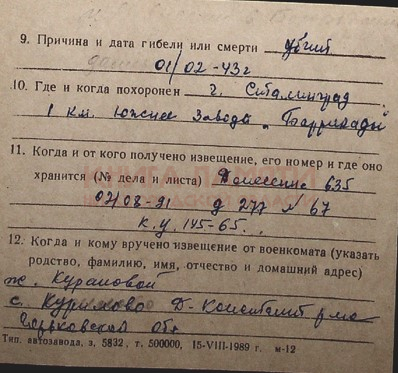 9. Причина и дата гибели или смерти убит
01/02-43г
10. Где и когда похоронен г. Сталинград
1 км. южнее завода „Баррикады"
11. Когда и от кого получено извещение, его номер и где оно
хранится (№ дела и листа) Донесение 635
02/08-91 д 277 л 67
к.у. 145-65.
12. Когда и кому вручено извещение от военкомата (указать
родство, фамилию, имя, отчество и домашний адрес)
ж. Курановой
с. Курилово Д-Константин р-на
Горьковской обл
Тип. автозавода, з. 5832, т. 500000, 15-VIII-1989 г. м-12